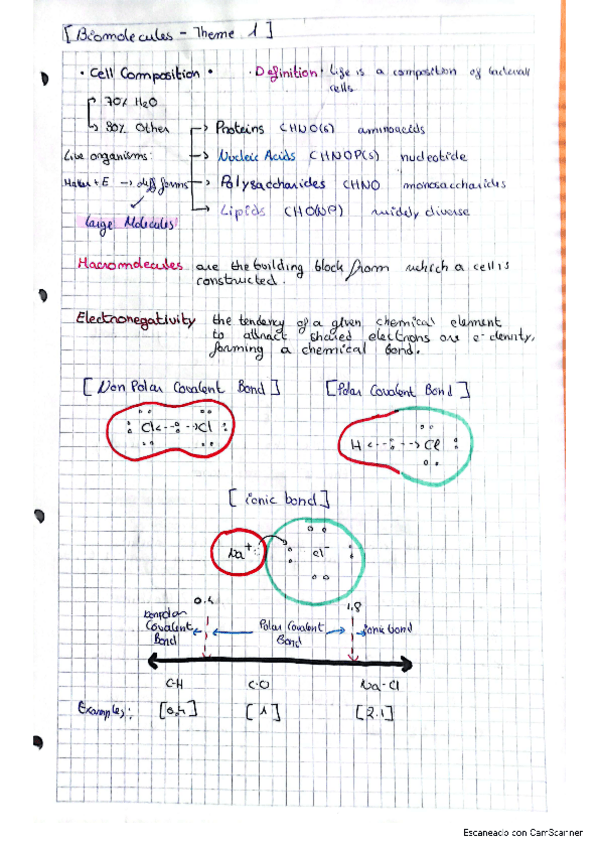 [Biomolecules - Theme 1]
• Cell Composition •
· Definition: Life is a composition of bacterial
cells
70% H2O
30% Other
Proteins CHNO(S) aminoacids
Live organisms:
Nucleic Acids CHNOP(S) nucleotide
Mater + E → diff forms
Polysaccharides CHNO monosaccharides
Lipids CHO(NP) widely diverse
Large Molecules
Macromolecules are the building block from which a cell is
constructed.
Electronegativity the tendency of a given chemical element
to attract shared electrons are e- density,
forming a chemical bond.
[Non Polar Covalent Bond] [Polar Covalent Bond]
Cl <-- : --> Cl
H <-- : --> Cl
[ionic bond]
Na+ Cl-
0.4 1,8
Nonpolar
Covalent
Bond
Polar Covalent
Bond
ionic bond
C-H C-O Na-Cl
Examples: [0,4] [1] [2.1]
Escaneado con CamScanner